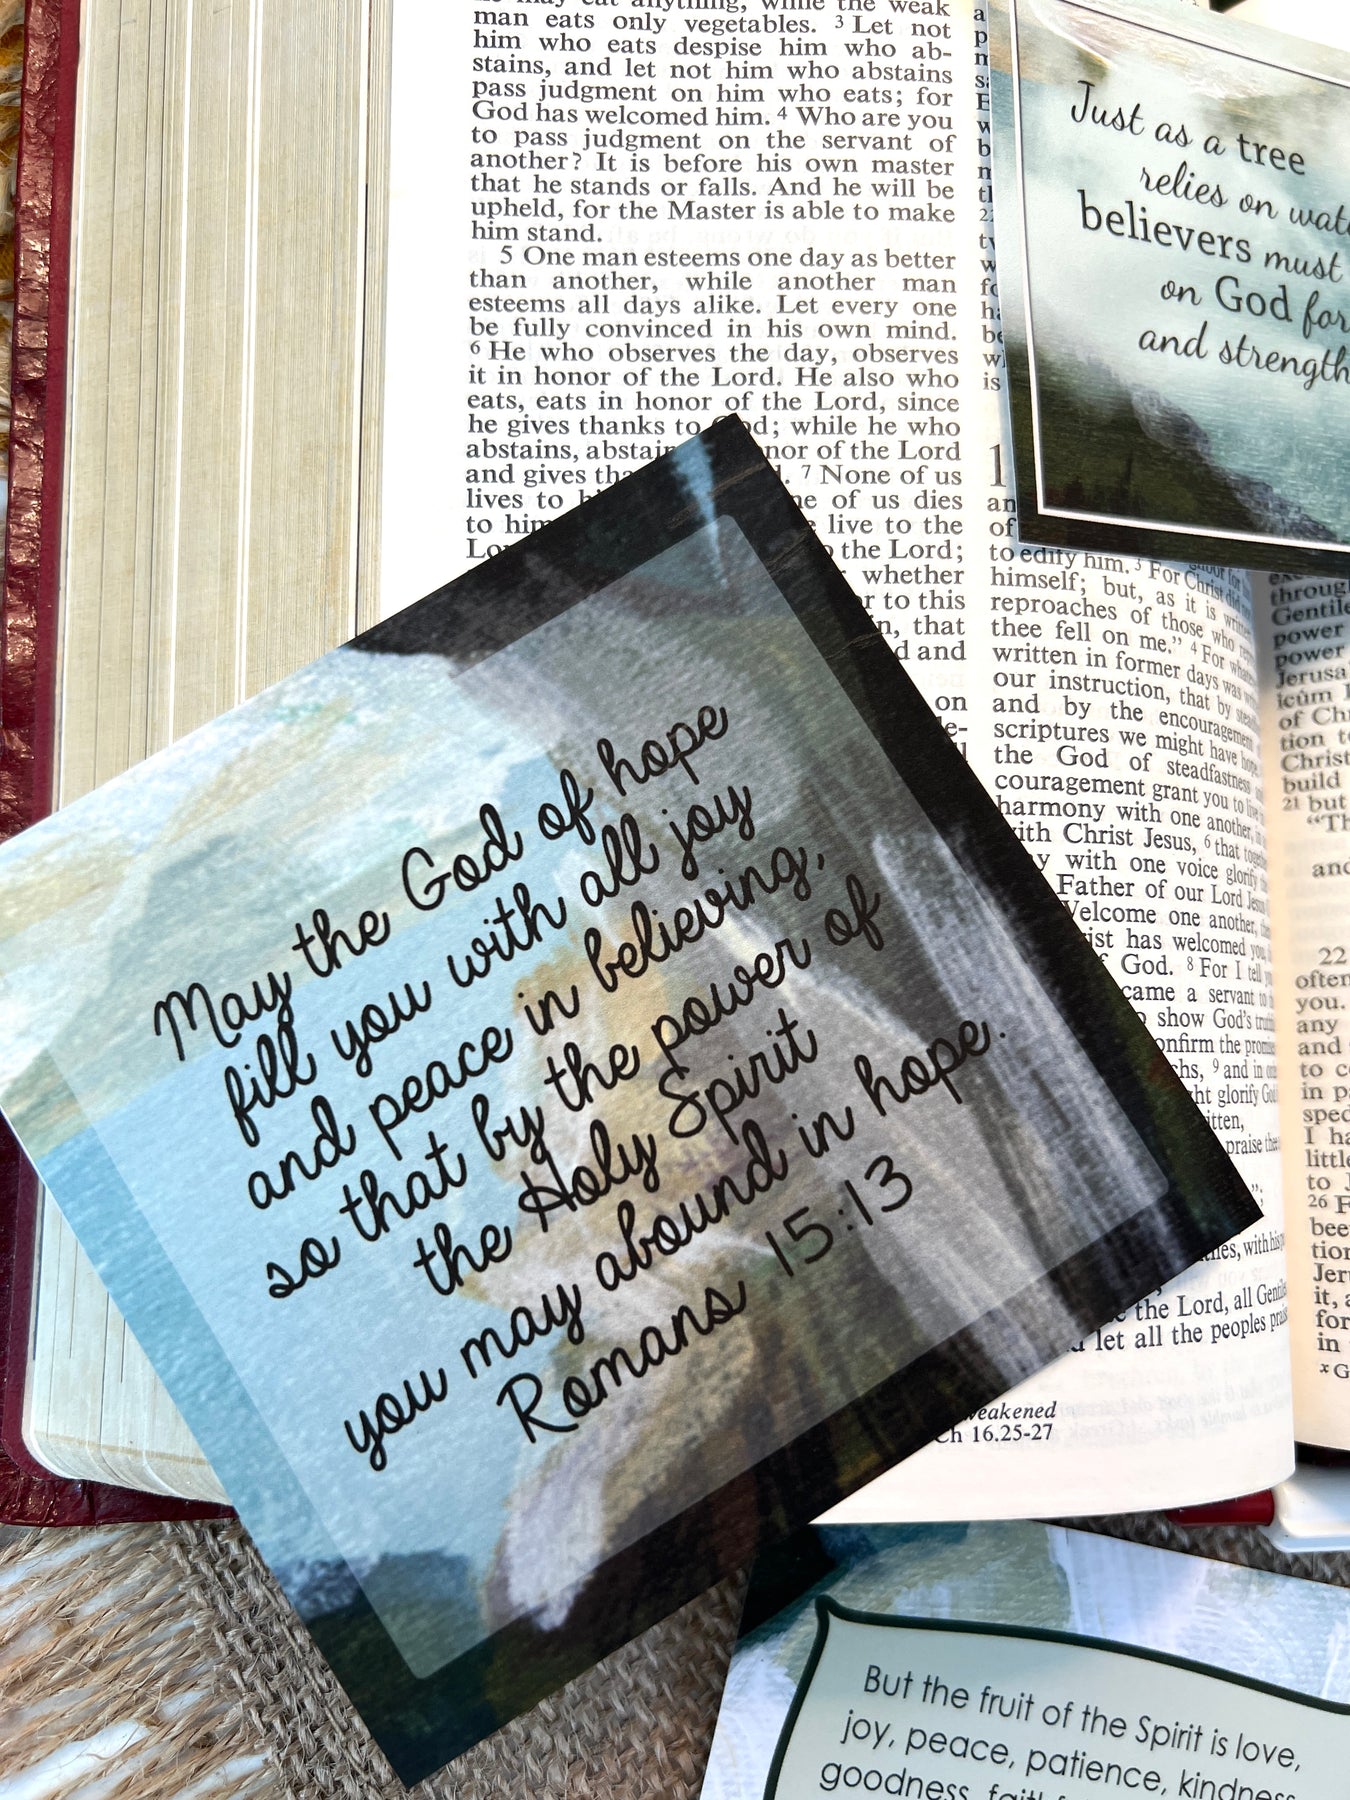 he may eat anything, while the weak
man eats only vegetables. 3 Let not
him who eats despise him who ab-
stains, and let not him who abstains
pass judgment on him who eats; for
God has welcomed him. 4 Who are you
to pass judgment on the servant of
another? It is before his own master
that he stands or falls. And he will be
upheld, for the Master is able to make
him stand.
5 One man esteems one day as better
than another, while another man
esteems all days alike. Let every one
be fully convinced in his own mind.
6 He who observes the day, observes
it in honor of the Lord. He also who
eats, eats in honor of the Lord, since
he gives thanks to God; while he who
abstains, nor of the Lord
and gives 7 None of us
lives to of us dies
to live to the
the Lord;
whether
to this
that
and
on
Just as a tree
relies on
believers must
on God for
and strength
to edify him. 3 For Christ did
himself; but, as it is
reproaches of those who
thee fell on me." 4 For
written in former days was
our instruction, that by
and by the encouragement
scriptures we might have
the God of steadfastness
couragement grant you to
harmony with one another, in
with Christ Jesus, 6 that
with one voice glorify
Father of our Lord Jesus
Welcome one another,
has welcomed you
God. 8 For I tell
came a servant to
show God's
confirm the
9 and in
glorify God
praise
the Lord, all
let all the peoples
weakened
Ch 16.25-27
through
Gentile
power
power
Jerusa
icúm
of
tion
Christ
build
21 but
and
22
often
you.
any
and
to
in
I
little
to
26
been
tion
Jer
it,
for
in
x G
May the God of hope
fill you with all joy
and peace in believing,
so that by the power of
the Holy Spirit
you may abound in hope.
Romans 15:13
But the fruit of the Spirit is love,
joy, peace, patience, kindness
goodness